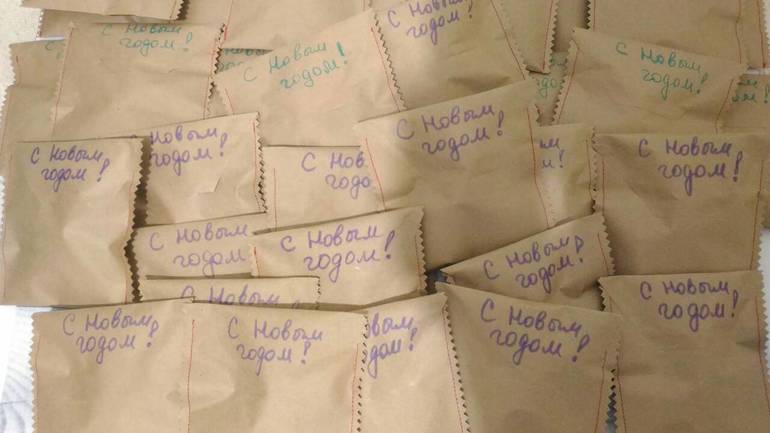 С Новым
годом!
Новым
годом!
С Новым
годом!
С Новым
годом!
С Новым
годом!
Новым
годом!
С Новым
годом!
С Нов
годом
С Новым
годом!
С Новым
годом
С Новым
годом!
С Новым
годом!
С Новым
С Новым
годом!
С Новым
годом!
С Новым
годом!
С Новым
годом!